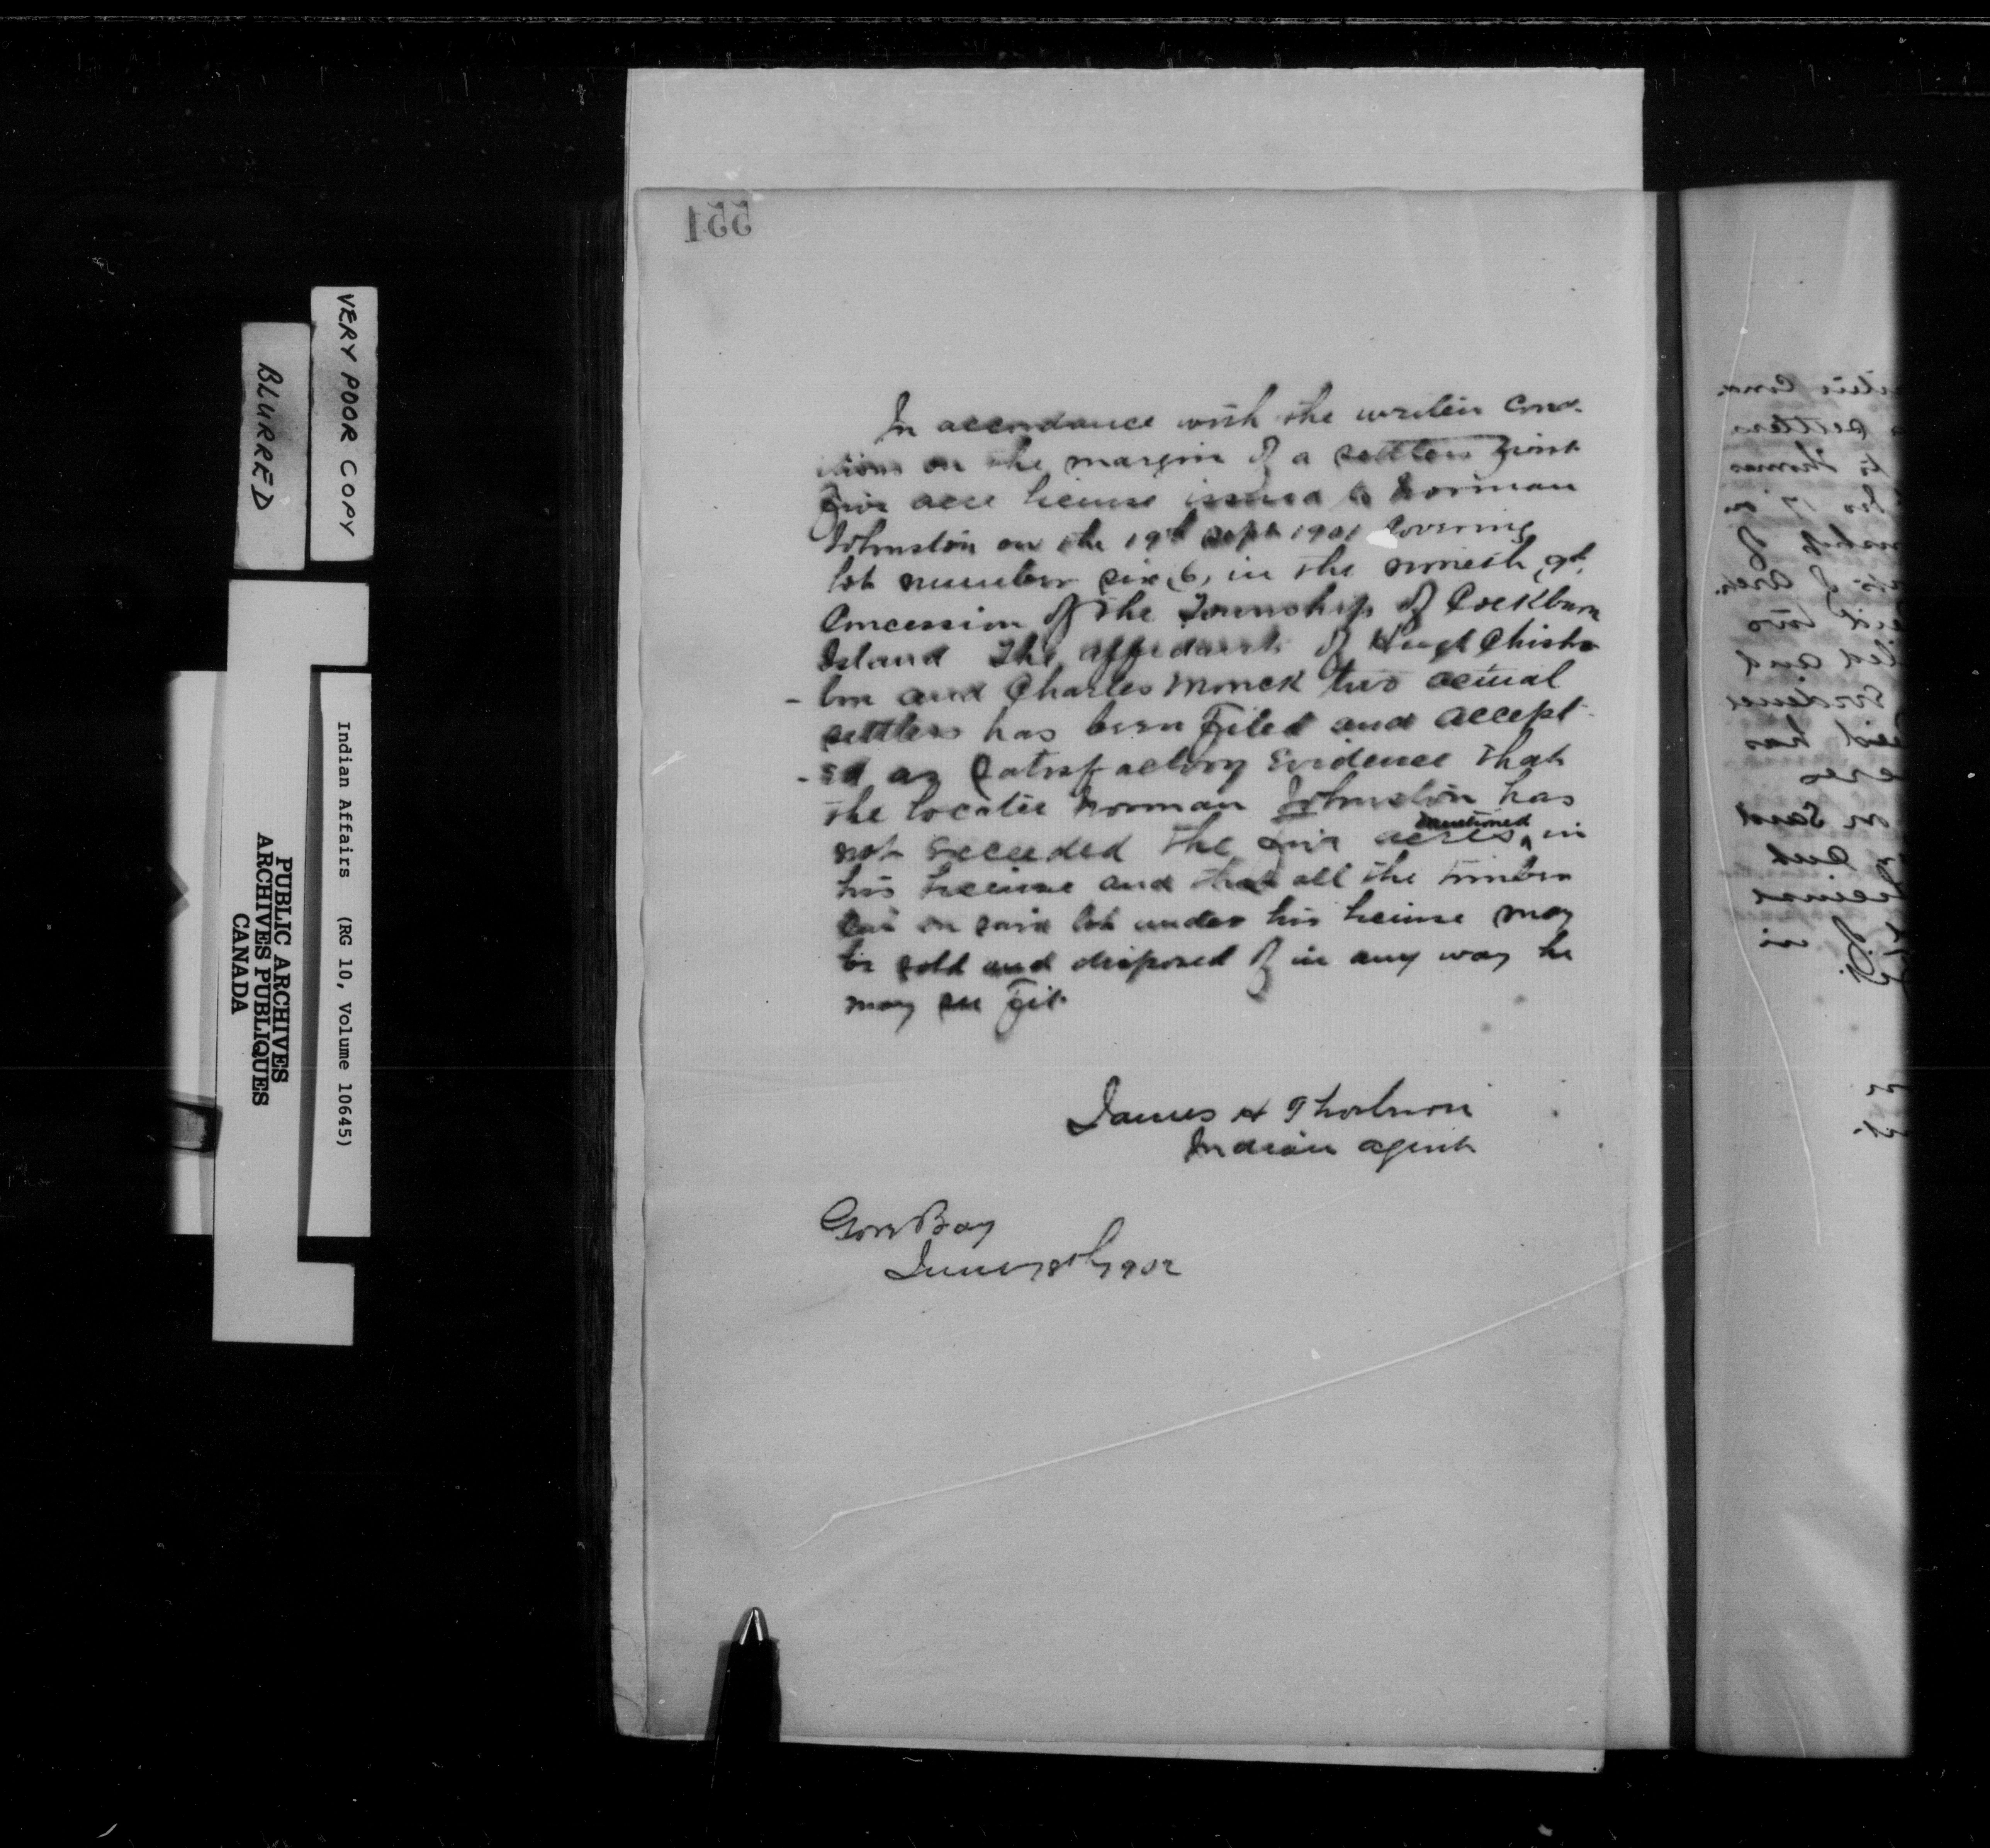 551
In accordance with the written cond-
itions on the margin of a settlers
Five acre license issued to Norman
Johnston on the 19th Sept 1901 Covering
lot number six, 6, in the nineth, 9th,
Concession of the Township of Cockburn
Island The affidavit of Hugh Chisho
- lm and Charles Monck two actual
settlers has been Filed and accept-
- ed as satisfactory Evidence that
the locatee Norman Johnston has
not Exceeded the Five acres mentioned in
his license and that all the timber
cut on said lot under his license may
be sold and disposed of in any way he
may see Fit
James H Thorburn
Indian agent
Gore Bay
June 18th 1902
VERY POOR COPY
BLURRED
Indian Affairs (RG 10, Volume 10645)
PUBLIC ARCHIVES
ARCHIVES PUBLIQUES
CANADA